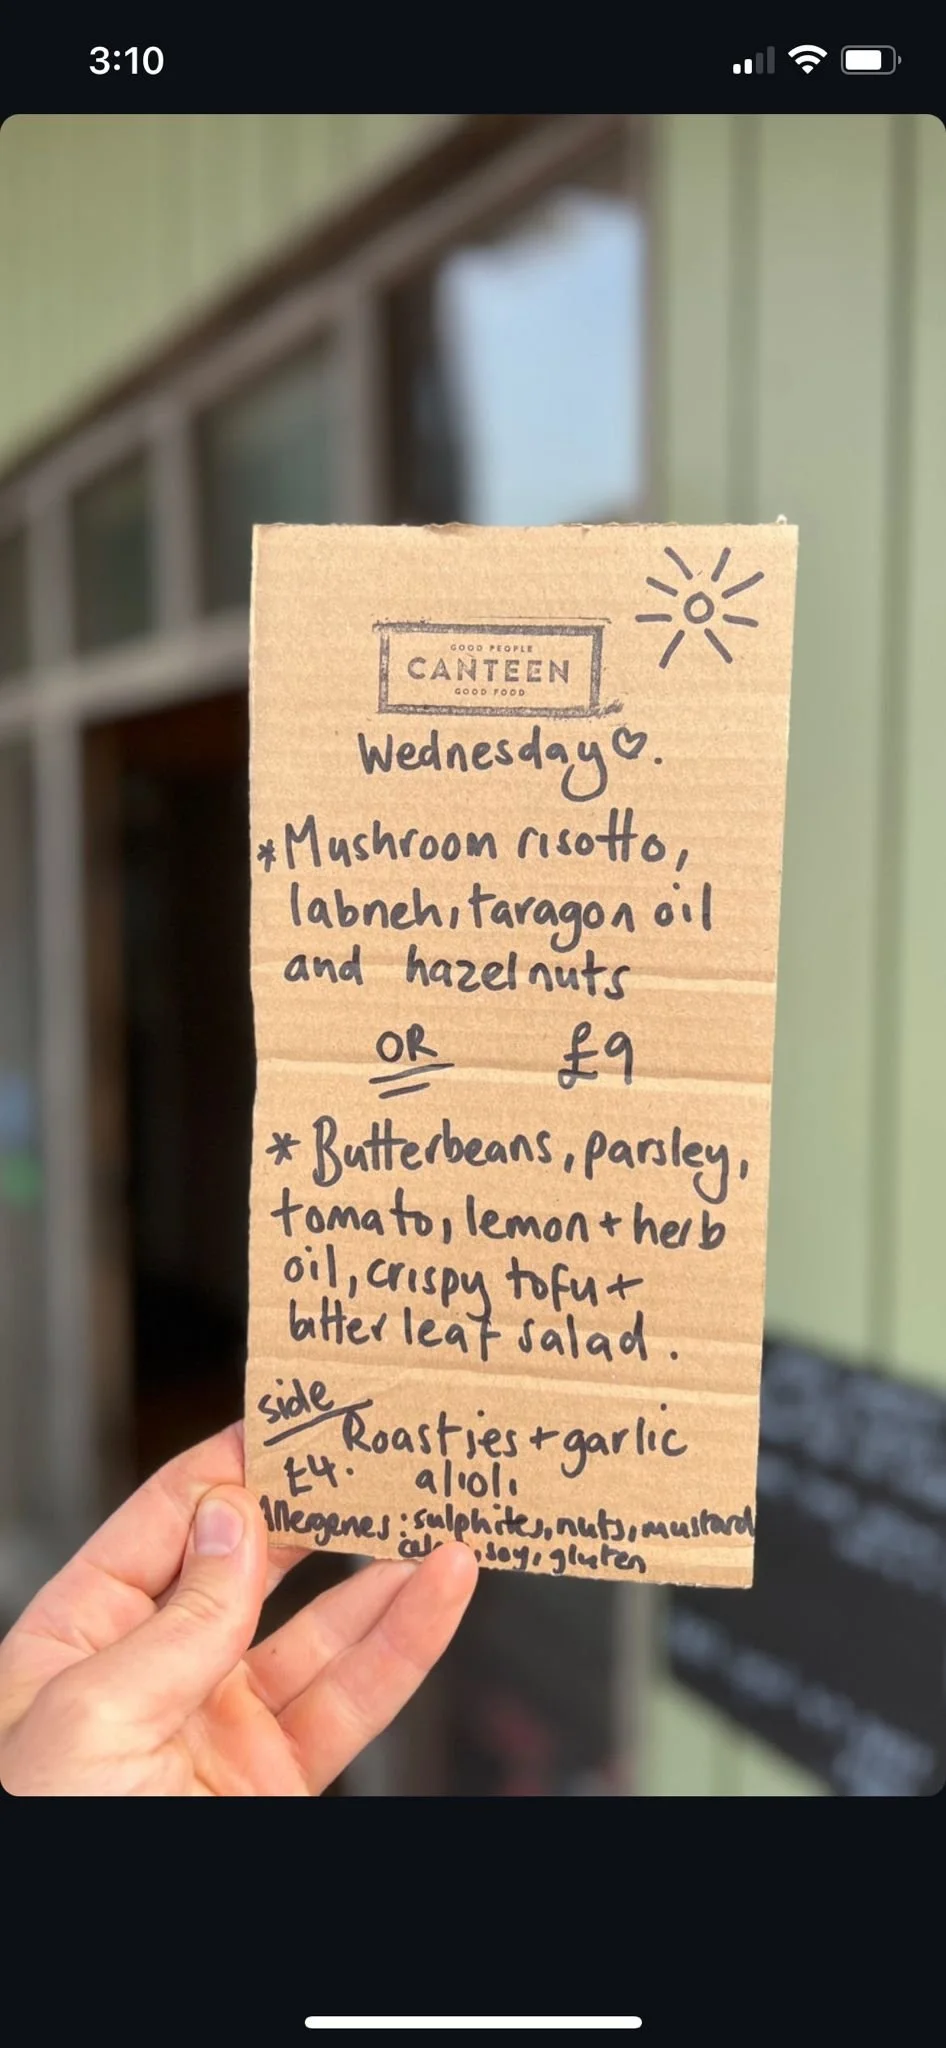 3:10
GOOD PEOPLE
CANTEEN
GOOD FOOD
Wednesday♡.
*Mushroom risotto,
labneh, taragon oil
and hazelnuts
OR £9
* Butterbeans, parsley,
tomato, lemon + herb
oil, crispy tofu +
bitter leaf salad.
side Roasties + garlic
£4. alioli
Allergenes: sulphites, nuts, mustard
, soy, gluten